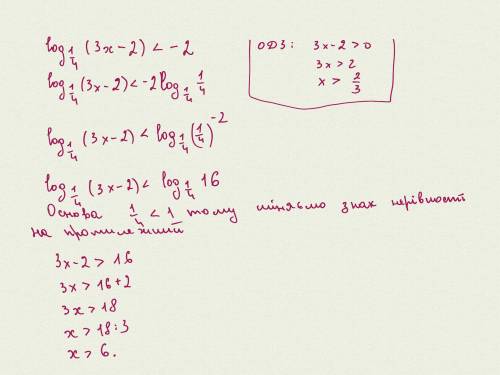 log_{1/4} (3x-2) < -2
log_{1/4} (3x-2) < -2 log_{1/4} 1/4
log_{1/4} (3x-2) < log_{1/4} (1/4)^{-2}
log_{1/4} (3x-2) < log_{1/4} 16
Основа 1/4 < 1 тому міняьмо знак нерівності
на протилежний
3x-2 > 16
3x > 16+2
3x > 18
x > 18:3
x > 6.
ОДЗ: 3x-2>0
3x>2
x > 2/3